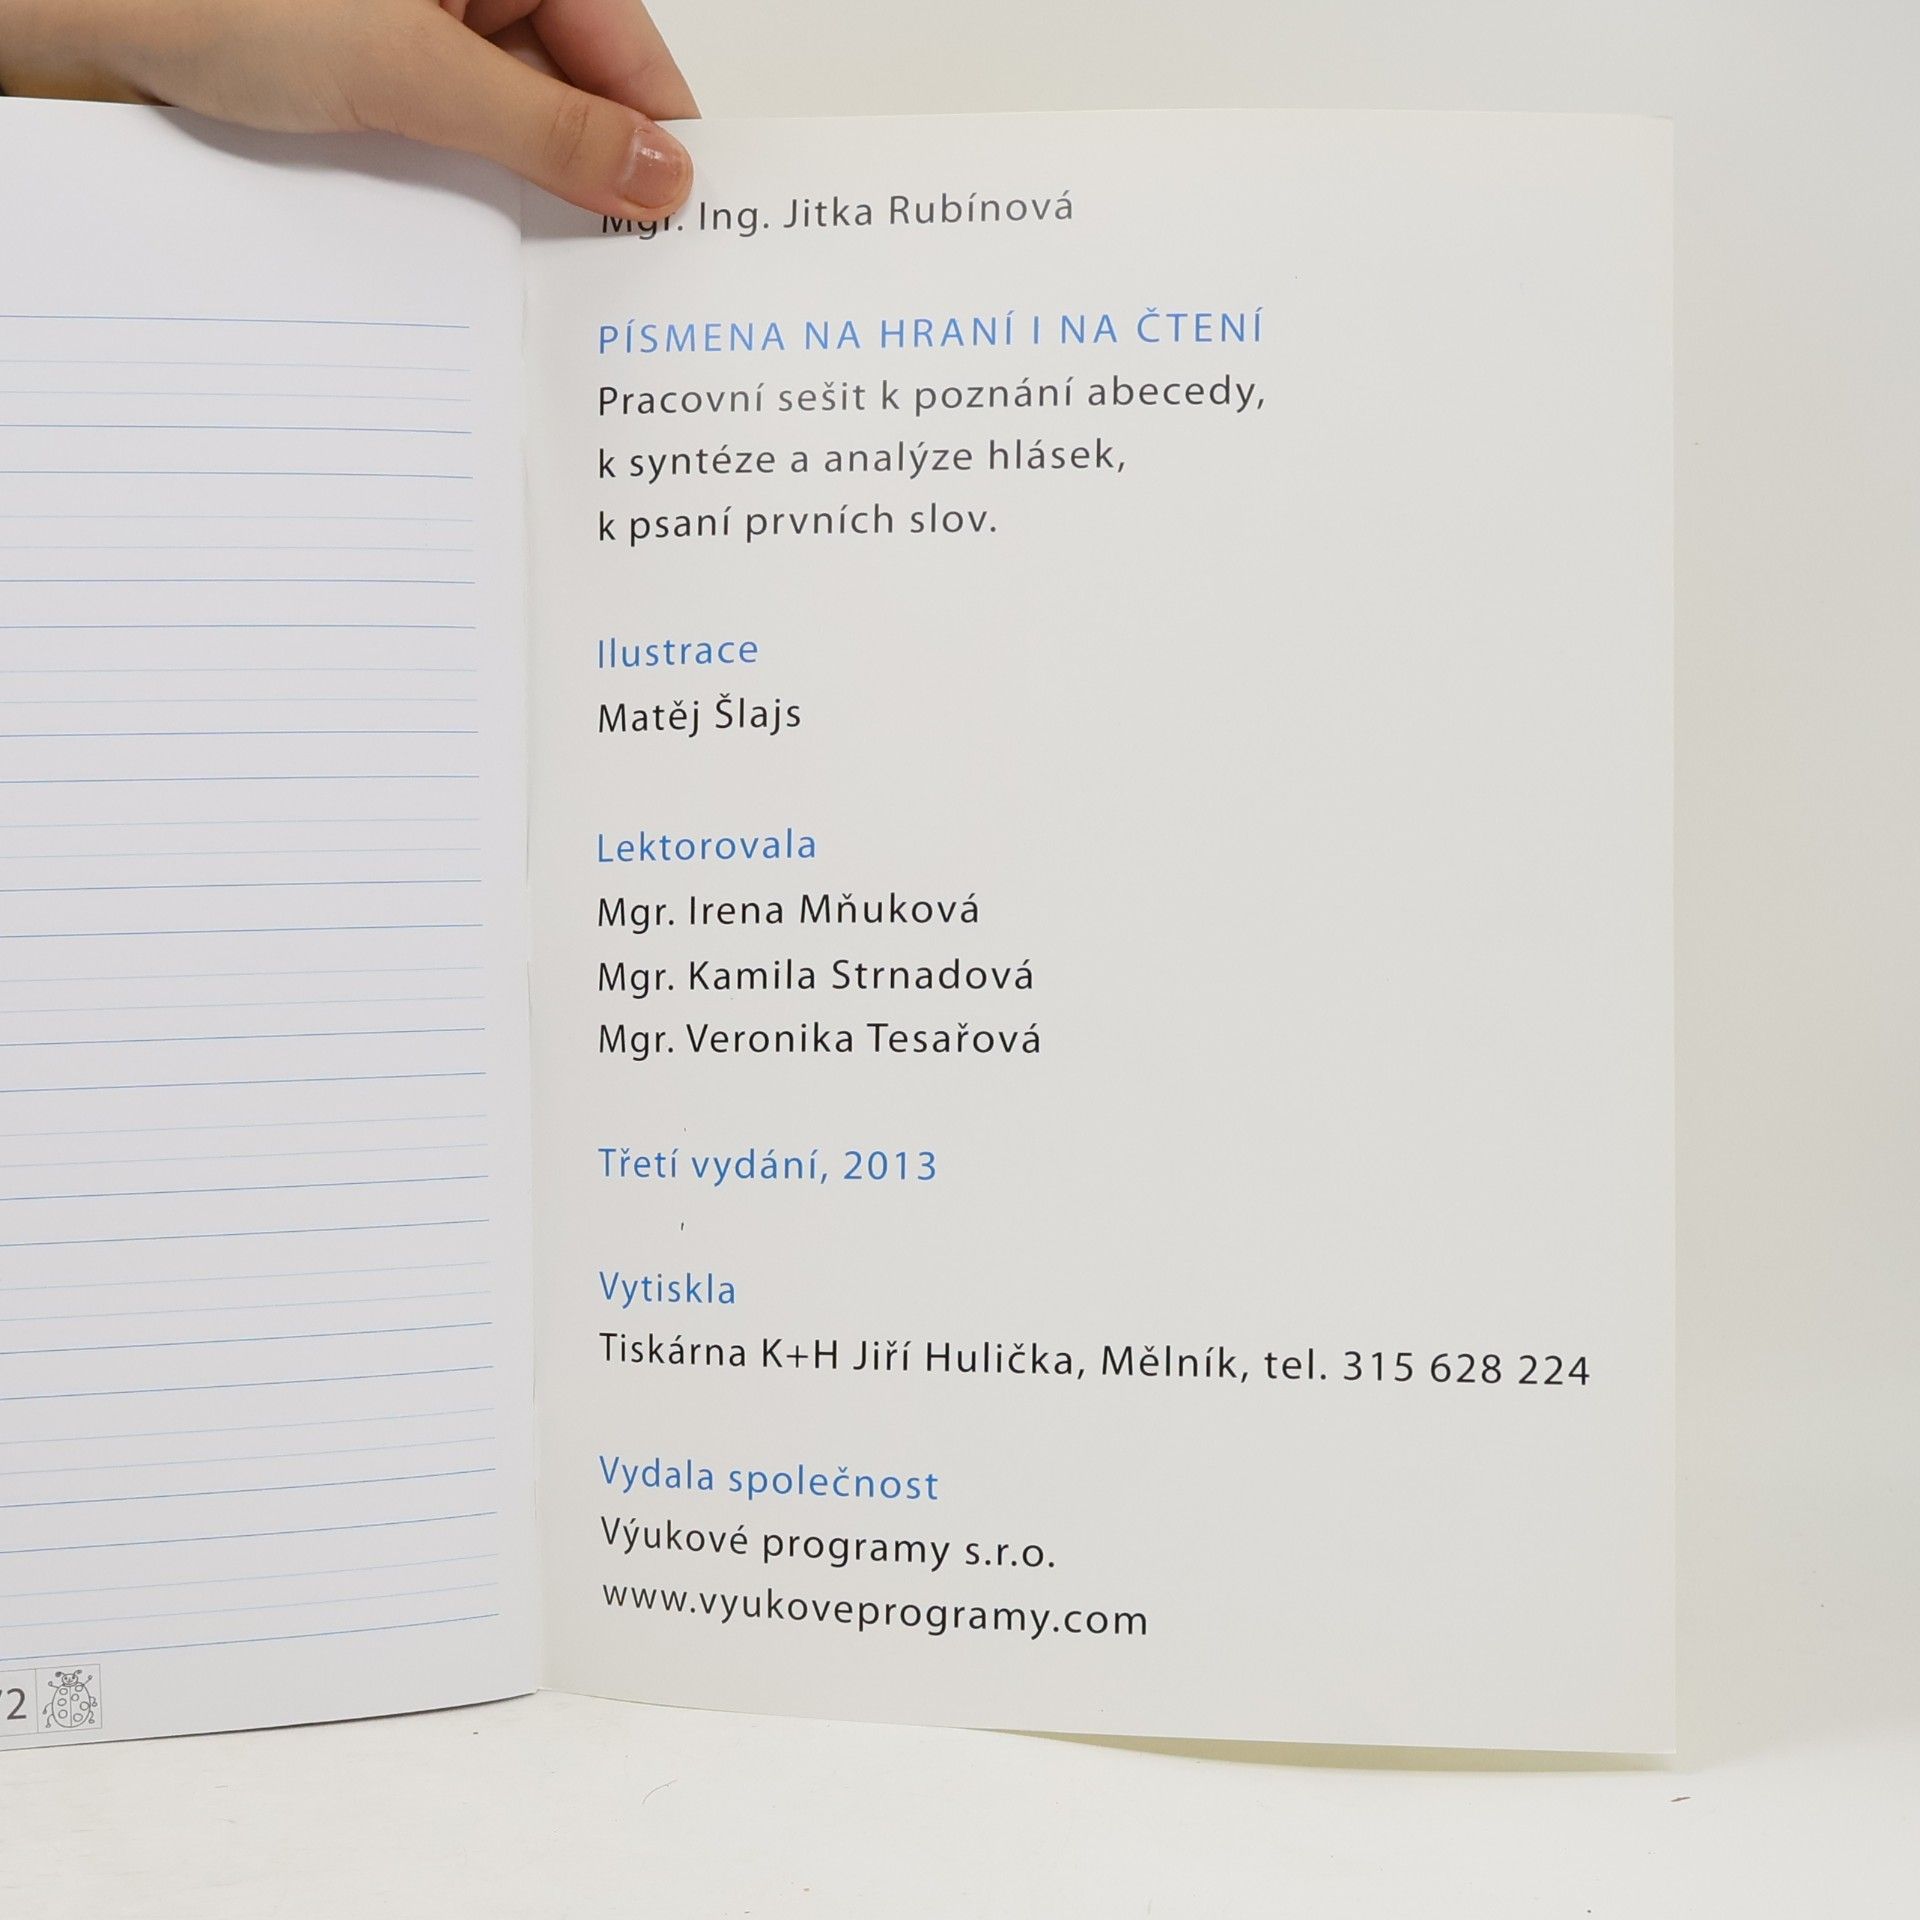 Mgr. Ing. Jitka Rubínová
PÍSMENA NA HRANÍ I NA ČTENÍ
Pracovní sešit k poznání abecedy,
k syntéze a analýze hlásek,
k psaní prvních slov.
Ilustrace
Matěj Šlajs
Lektorovala
Mgr. Irena Mňuková
Mgr. Kamila Strnadová
Mgr. Veronika Tesařová
Třetí vydání, 2013
Vytiskla
Tiskárna K+H Jiří Hulička, Mělník, tel. 315 628 224
Vydala společnost
Výukové programy s.r.o.
www.vyukoveprogramy.com